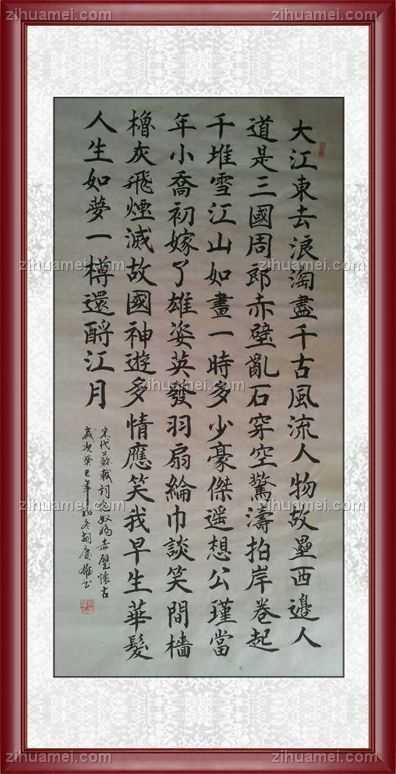 zihuamei.com zihuamei.com zihuamei.com
大江東去浪淘盡千古風流人物故壘西邊人
道是三國周郎赤壁亂石穿空驚濤拍岸卷起
千堆雪江山如畫一時多少豪傑遥想公瑾當
年小喬初嫁了雄姿英發羽扇綸巾談笑間檣
櫓灰飛煙滅故國神遊多情應笑我早生華髮
人生如夢一樽還酹江月
宋代蘇軾詞念奴嬌赤壁懷古
歲次癸巳年初冬胡慶
zihuamei.com zihuamei.com zihuamei.com
zihuamei.com zihuamei.com zihuamei.com
zihuamei.com zihuamei.com zihuamei.com